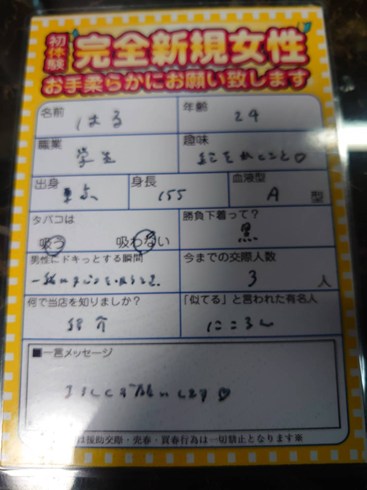 初体験
完全新規女性
お手柔らかにお願い致します
名前 はる 年齢 24
職業 学生 趣味
出身 身長 155 血液型 A 型
タバコは 吸う 吸わない 勝負下着って? 黒
男性にドキっとする瞬間
今までの交際人数 3 人
何で当店を知りましたか? 紹介
「似てる」と言われた有名人
■一言メッセージ
よろしくお願いします♡
援助交際・売春・買春行為は一切禁止となります※